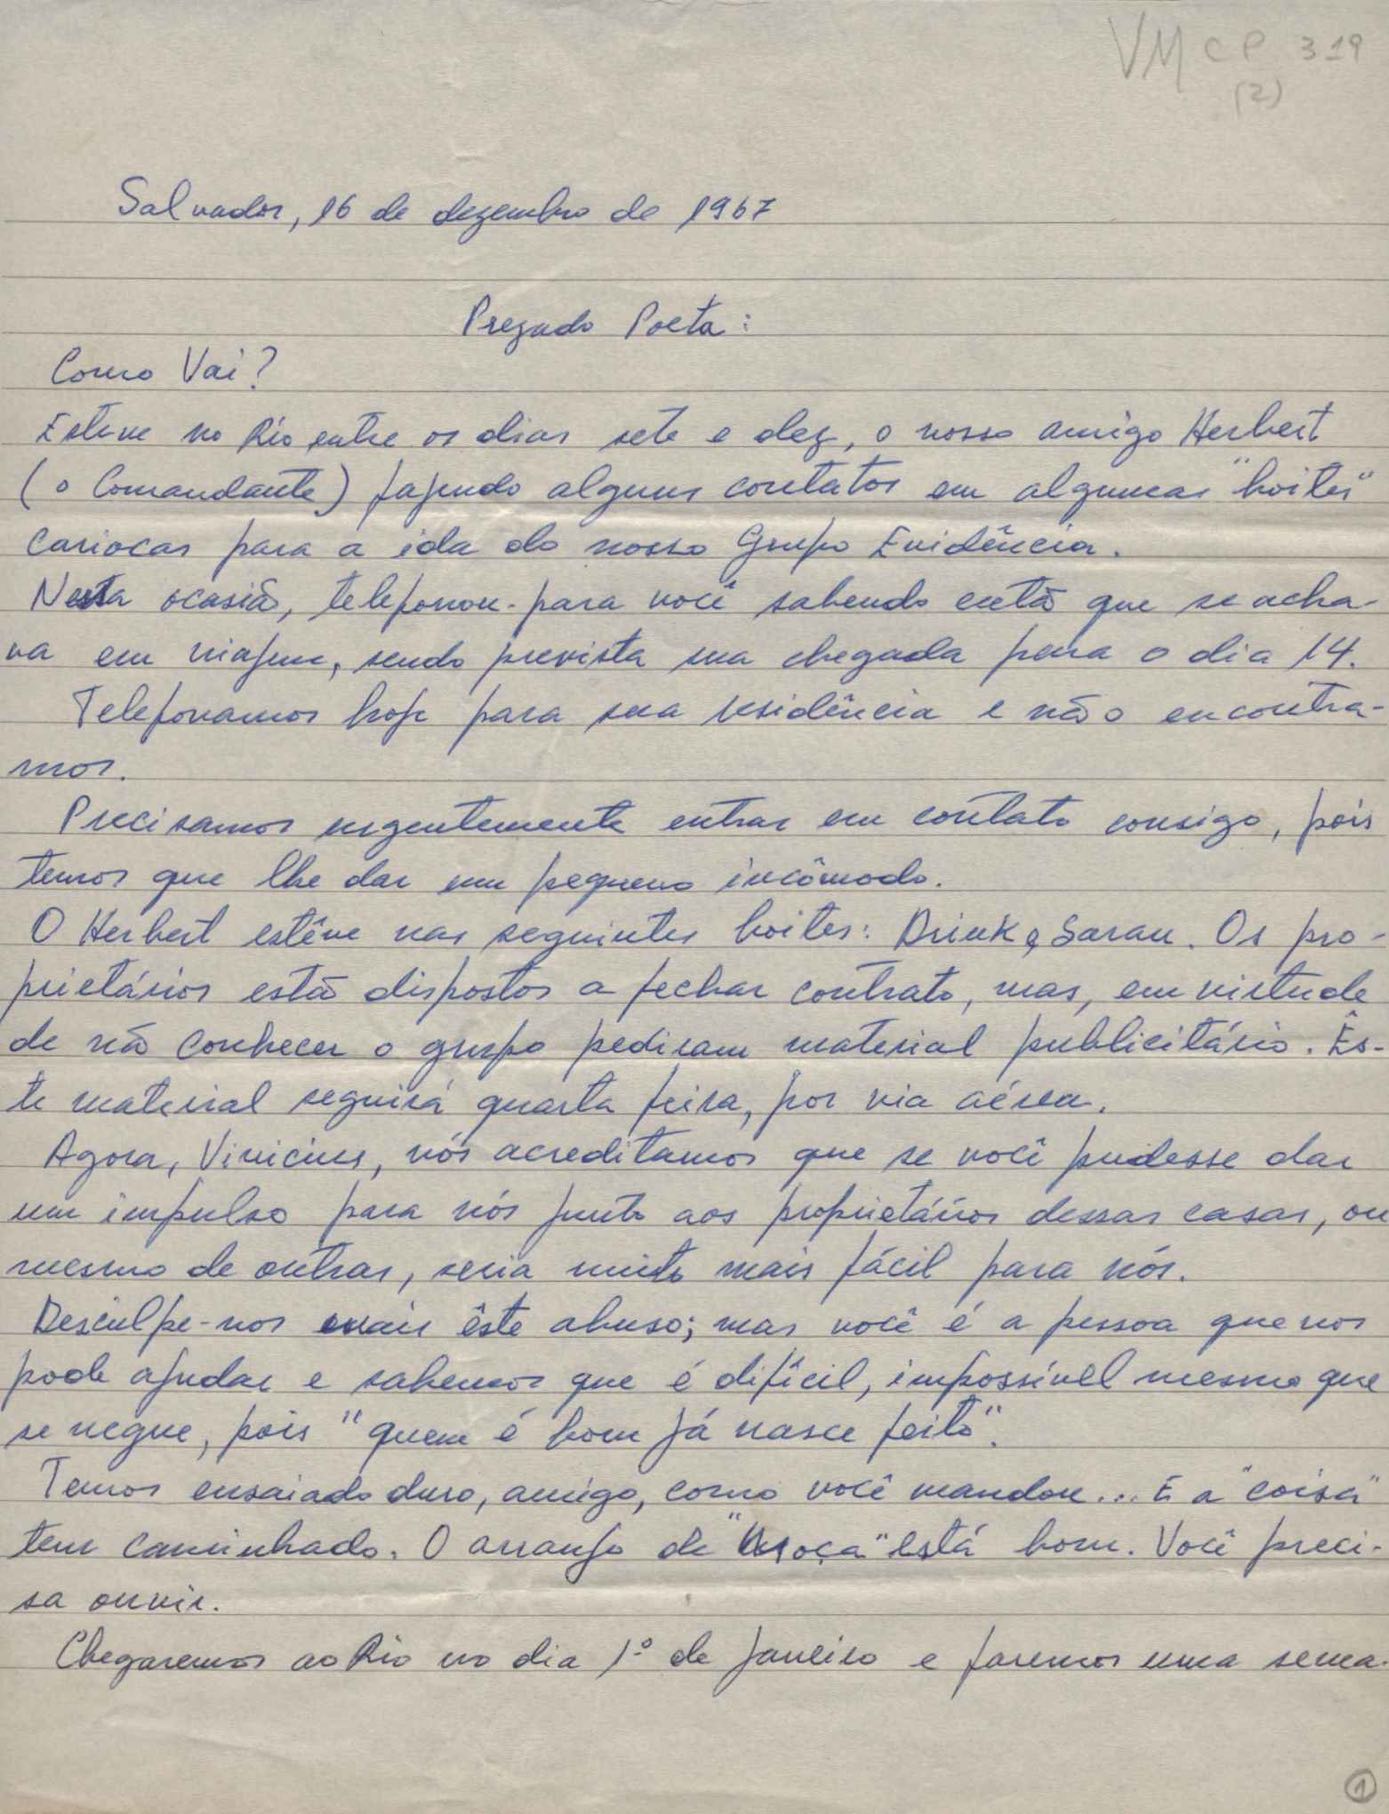 VM CP 319
(2)
Salvador, 16 de dezembro de 1967
Prezado Poeta:
Como Vai?
Esteve no Rio entre os dias sete e dez, o nosso amigo Herbert
(o Comandante) fazendo alguns contatos em algumas "boites"
cariocas para a ida do nosso Grupo Evidência.
Nesta ocasião, telefonou-para você sabendo então que se acha-
va em viajem, sendo prevista sua chegada para o dia 14.
Telefonamos hoje para sua residência e não o encontra-
mos.
Precisamos urgentemente entrar em contato consigo, pois
temos que lhe dar um pequeno incômodo.
O Herbert estêve nas seguintes boites: Drink e Sarau. Os pro-
prietários estão dispostos a fechar contrato, mas, em virtude
de não conhecer o grupo pediram material publicitário. Ês-
te material seguirá quarta feira, por via aérea.
Agora, Vinicius, nós acreditamos que se você pudesse dar
um impulso para nós junto aos proprietários dessas casas, ou
mesmo de outras, seria muito mais fácil para nós.
Desculpe-nos mais êste abuso; mas você é a pessoa que nos
pode ajudar e sabemos que é difícil, impossível mesmo que
se negue, pois "quem é bom já nasce feito".
Temos ensaiado duro, amigo, como você mandou... E a "coisa"
tem caminhado. O arranjo de "Moça" está bom. Você preci-
sa ouvir.
Chegaremos ao Rio no dia 1º de janeiro e faremos uma sema-
1